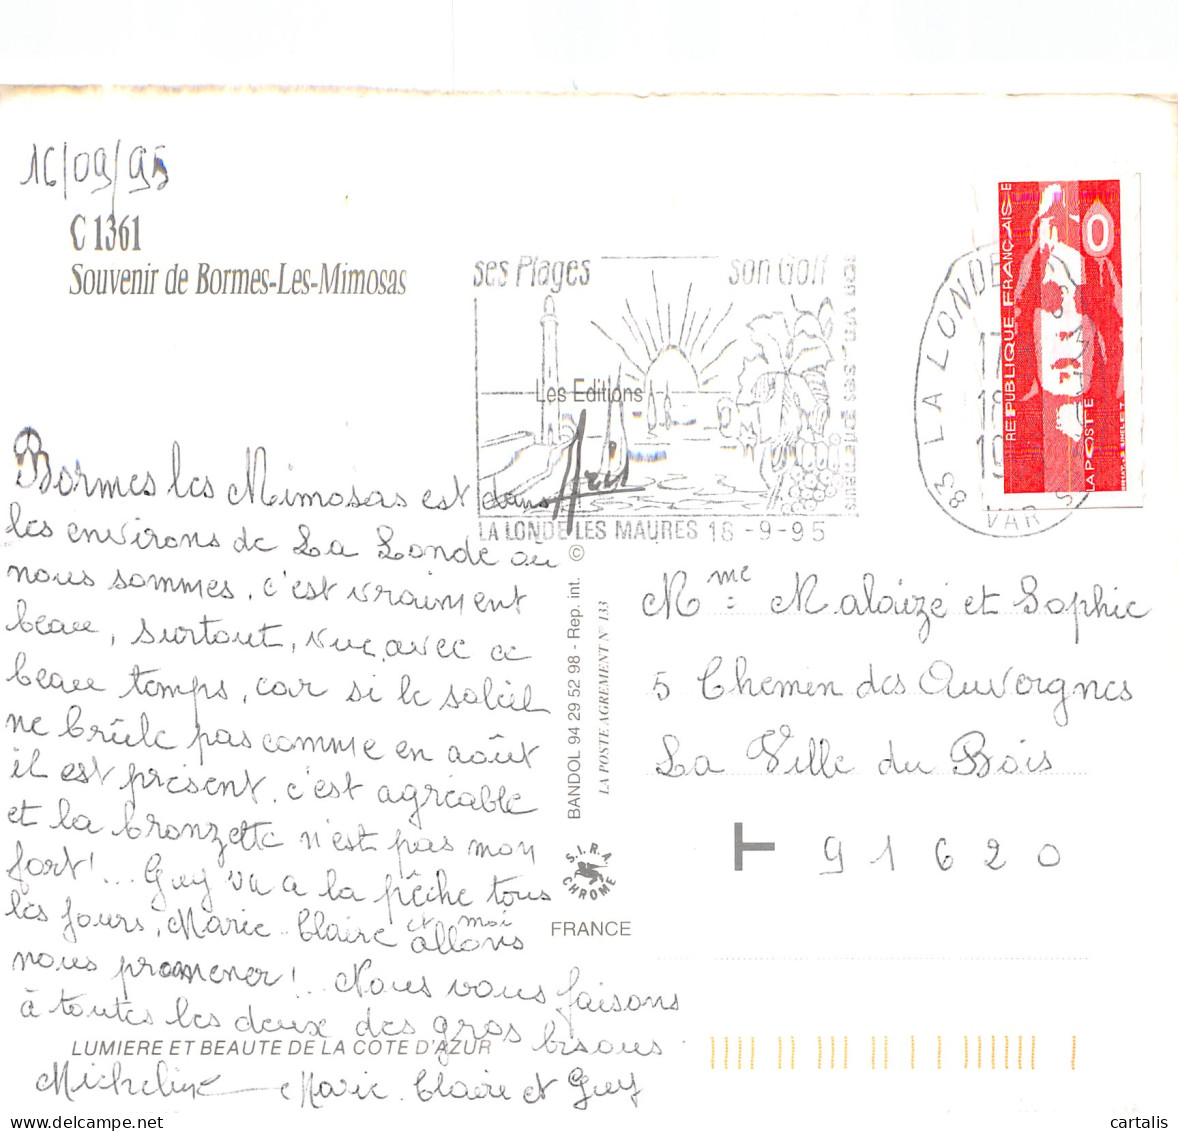 16/09/95
C 1361
Souvenir de Bormes-Les-Mimosas
ses Plages son Golf
son vin ses
Les Editions
Aris
LA LONDE LES MAURES 18 -9-95
83 LA LONDE
VAR
REPUBLIQUE FRANÇAISE
0
LA POSTE
Bormes les Mimosas est dans
les environs de La Londe où
nous sommes, c'est vraiment
beau, surtout, vue avec ce
beau temps, car si le soleil
ne brûle pas comme en août
il est présent, c'est agréable
et la bronzette n'est pas mon
fort!... Guy va a la pêche tous
les jours, Marie-Claire et moi allons
nous promener!.. Nous vous faisons
à toutes les deux des gros bisous.
Micheline Marie.Claire et Guy
BANDOL 94 29 52 98 - Rep. int. ©
LA POSTE AGREMENT N° 133
S.I.R.A.
CHROME
FRANCE
LUMIERE ET BEAUTE DE LA COTE D'AZUR
Mme Malaizé et Sophie
5 Chemin des Auvergnes
La Ville du Bois
T 91620
cartalis delcampe.net